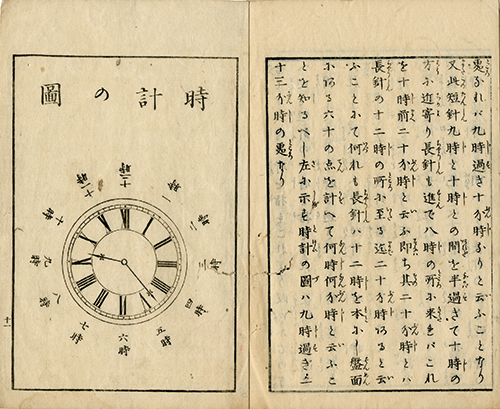 處なれバ九時過ぎ十分時なりと云ふことなり
又此短針九時と十時との間を半過ぎて十時の
方に近寄り長針も進で八時の所に來れバこれ
を十時前二十分時と云ふ即ち其二十分時とハ
長針の十二時の所に至る迄二十分時あると云
ふことにて何れも長針ハ十二時を本にし盤面
にある六十の点を計へて何時何分時と云ふこ
とを知るべし左に示す時計の圖ハ九時過ぎ二
十三分時の處なり
時計の圖
十二時
一時
二時
三時
四時
五時
六時
七時
八時
九時
十時
十一時
十一